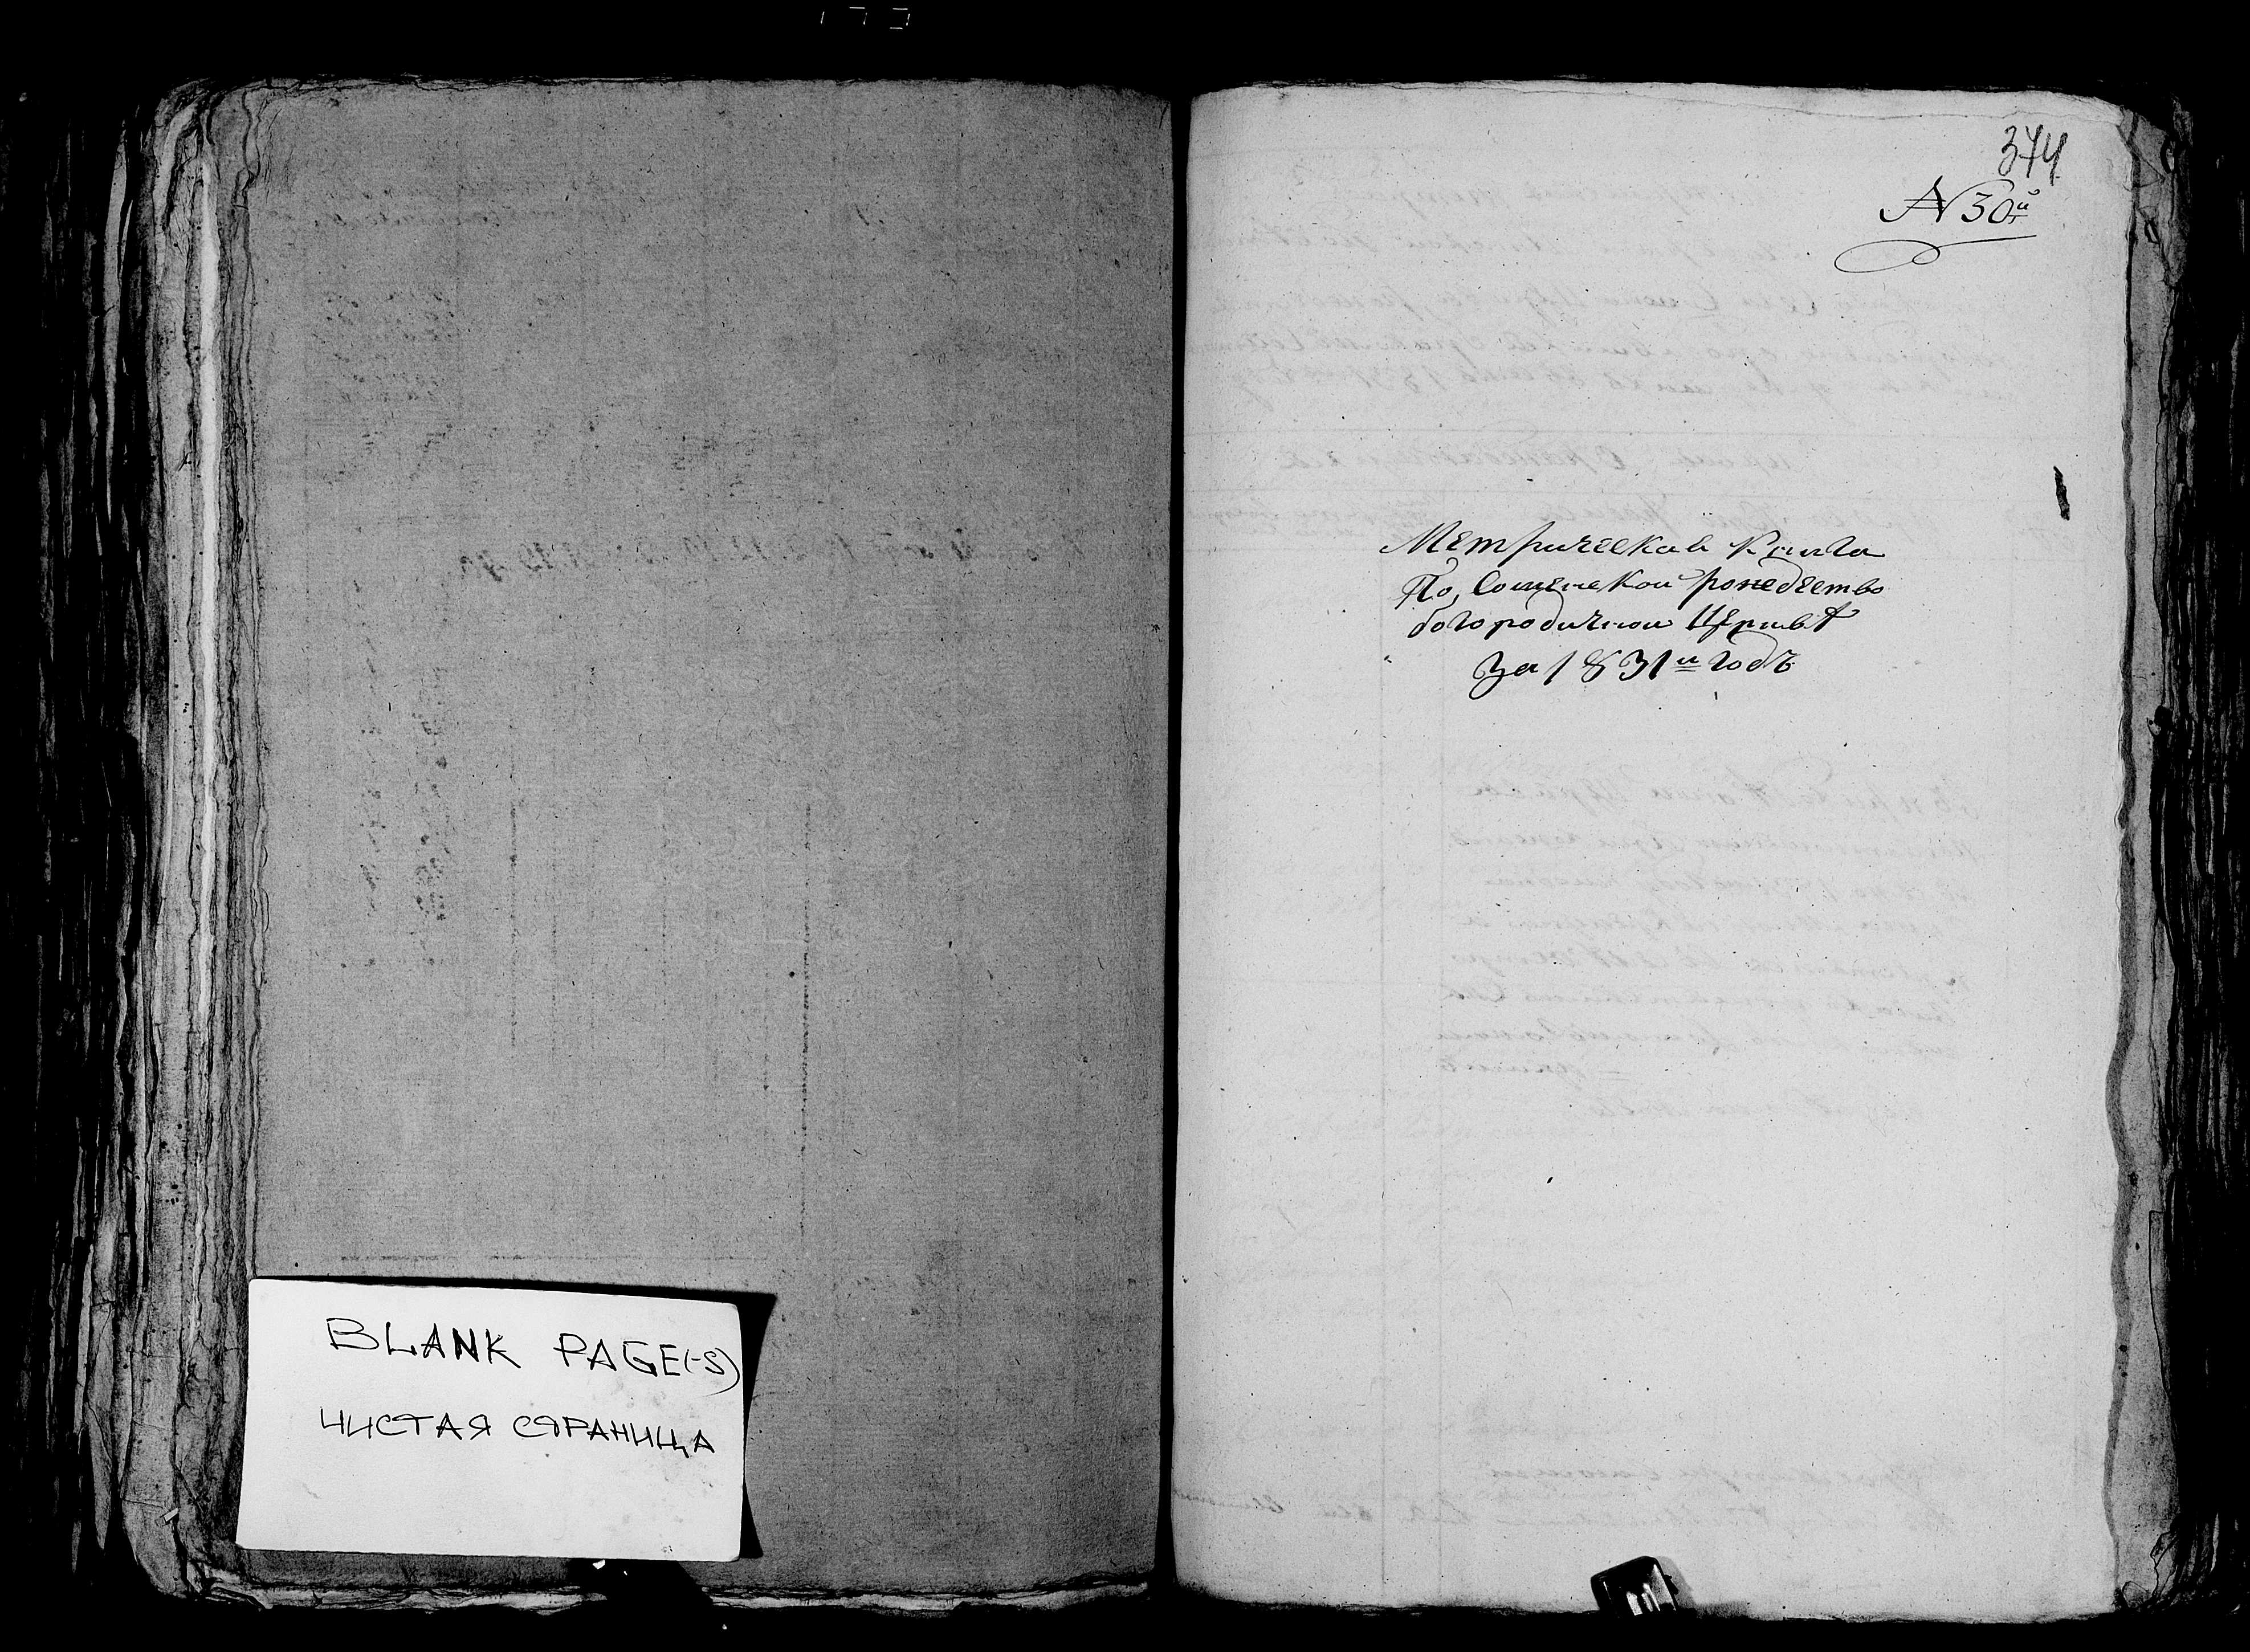 BLANK PAGE(-S)
ЧИСТАЯ СТРАНИЦА
374
N 30й
Метрическая книга
По Сошенской рождество
богородичной Церквѣ
За 1831й годъ